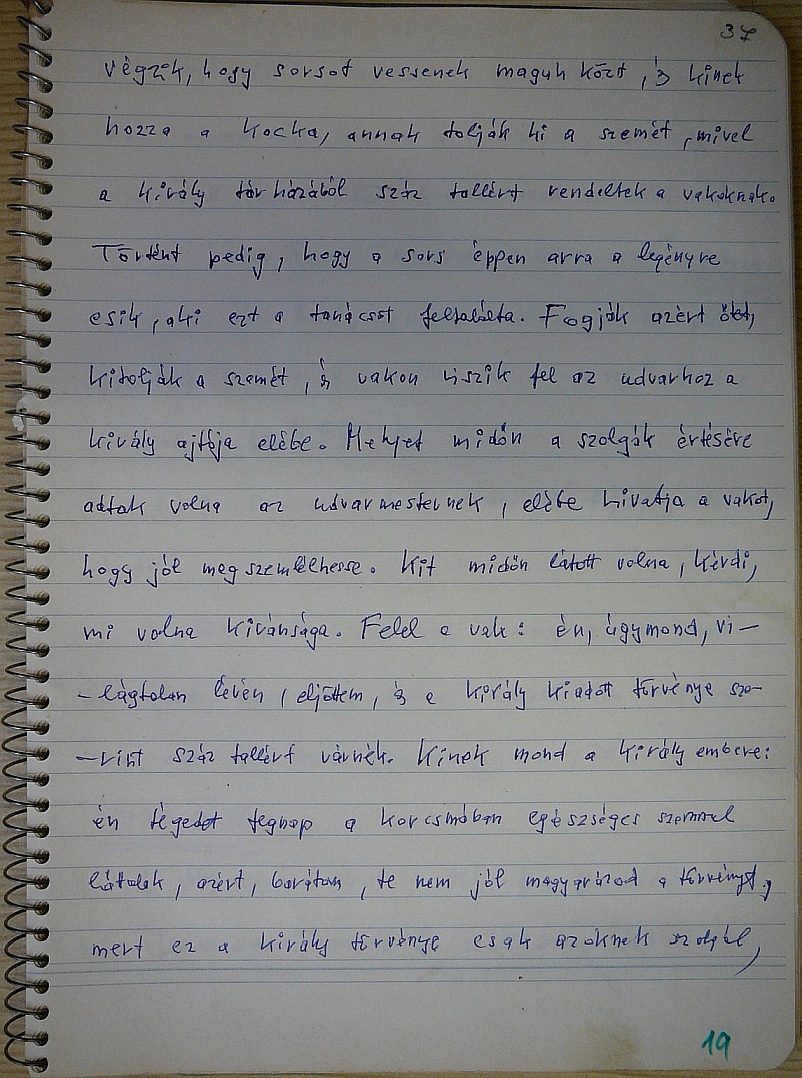 37
végzik, hogy sorsot vessenek maguk közt, és kinek
hozza a kocka, annak tolják ki a szemét, mivel
a király tárházából száz tallért rendeltek a vakoknak.
Történt pedig, hogy a sors éppen arra a legényre
esik, aki ezt a tanácsot feltalálta. Fogják azért őtet,
kitolják a szemét, és vakon viszik fel az udvarhoz a
király ajtója elébe. Melyet midőn a szolgák értésére
adtak volna az udvarmesternek, elébe hivatja a vakot,
hogy jól megszemlélhesse. Kit midőn látott volna, kérdi,
mi volna kívánsága. Felel a vak: én, úgymond, vi-
-lágtalan lévén, eljöttem, és a király kiadott törvénye sze-
-rint száz tallért várnék. Kinek mond a király embere:
én tégedet tegnap a korcsmában egészséges szemmel
láttalak, azért, barátom, te nem jól magyarázod a törvényt,
mert ez a király törvénye csak azoknak szolgál,
19